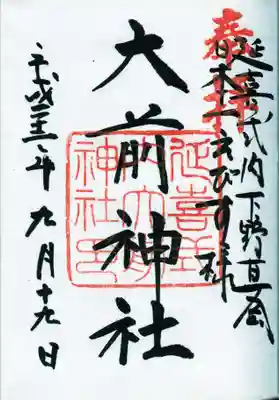 奉拝
延喜式内下野真岡
日本一えびす様
大前神社
延喜式
内大前
神社印
平成 年九月十九日